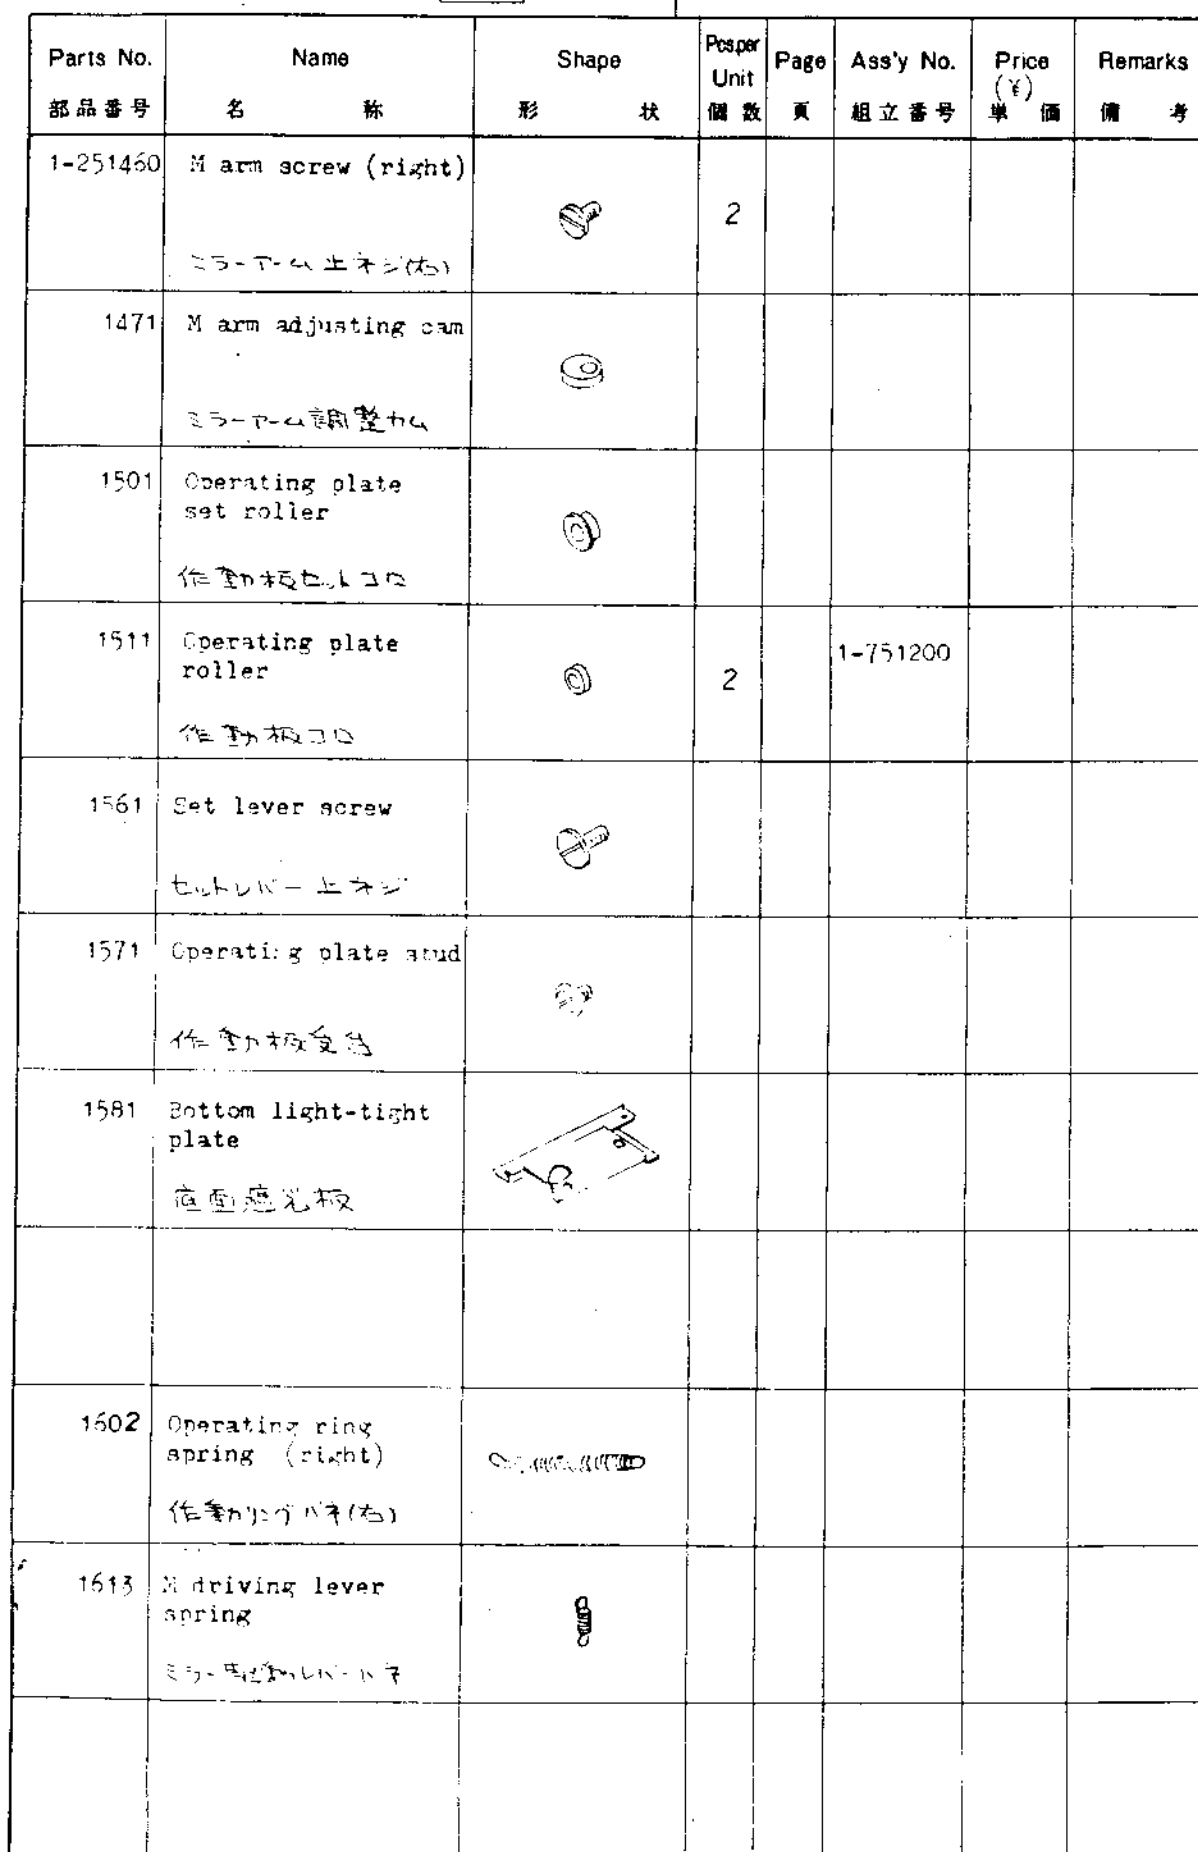 Parts No. Name Shape Pcs.per Unit Page Ass'y No. Price (¥) Remarks
部品番号 名 称 形 状 個 数 頁 組立番号 単 価 備 考
1-251460 M arm screw (right)
2
ミラーアーム止ネジ(右)
1471 M arm adjusting cam
ミラーアーム調整カム
1501 Operating plate
set roller
作動板セットコロ
1511 Operating plate 1-751200
roller 2
作動板コロ
1561 Set lever screw
セットレバー止ネジ
1571 Operating plate stud
作動板受
1581 Bottom light-tight
plate
底面遮光板
1602 Operating ring
spring (right)
作動リングバネ(右)
1613 M driving lever
spring
ミラー駆動レバーバネ